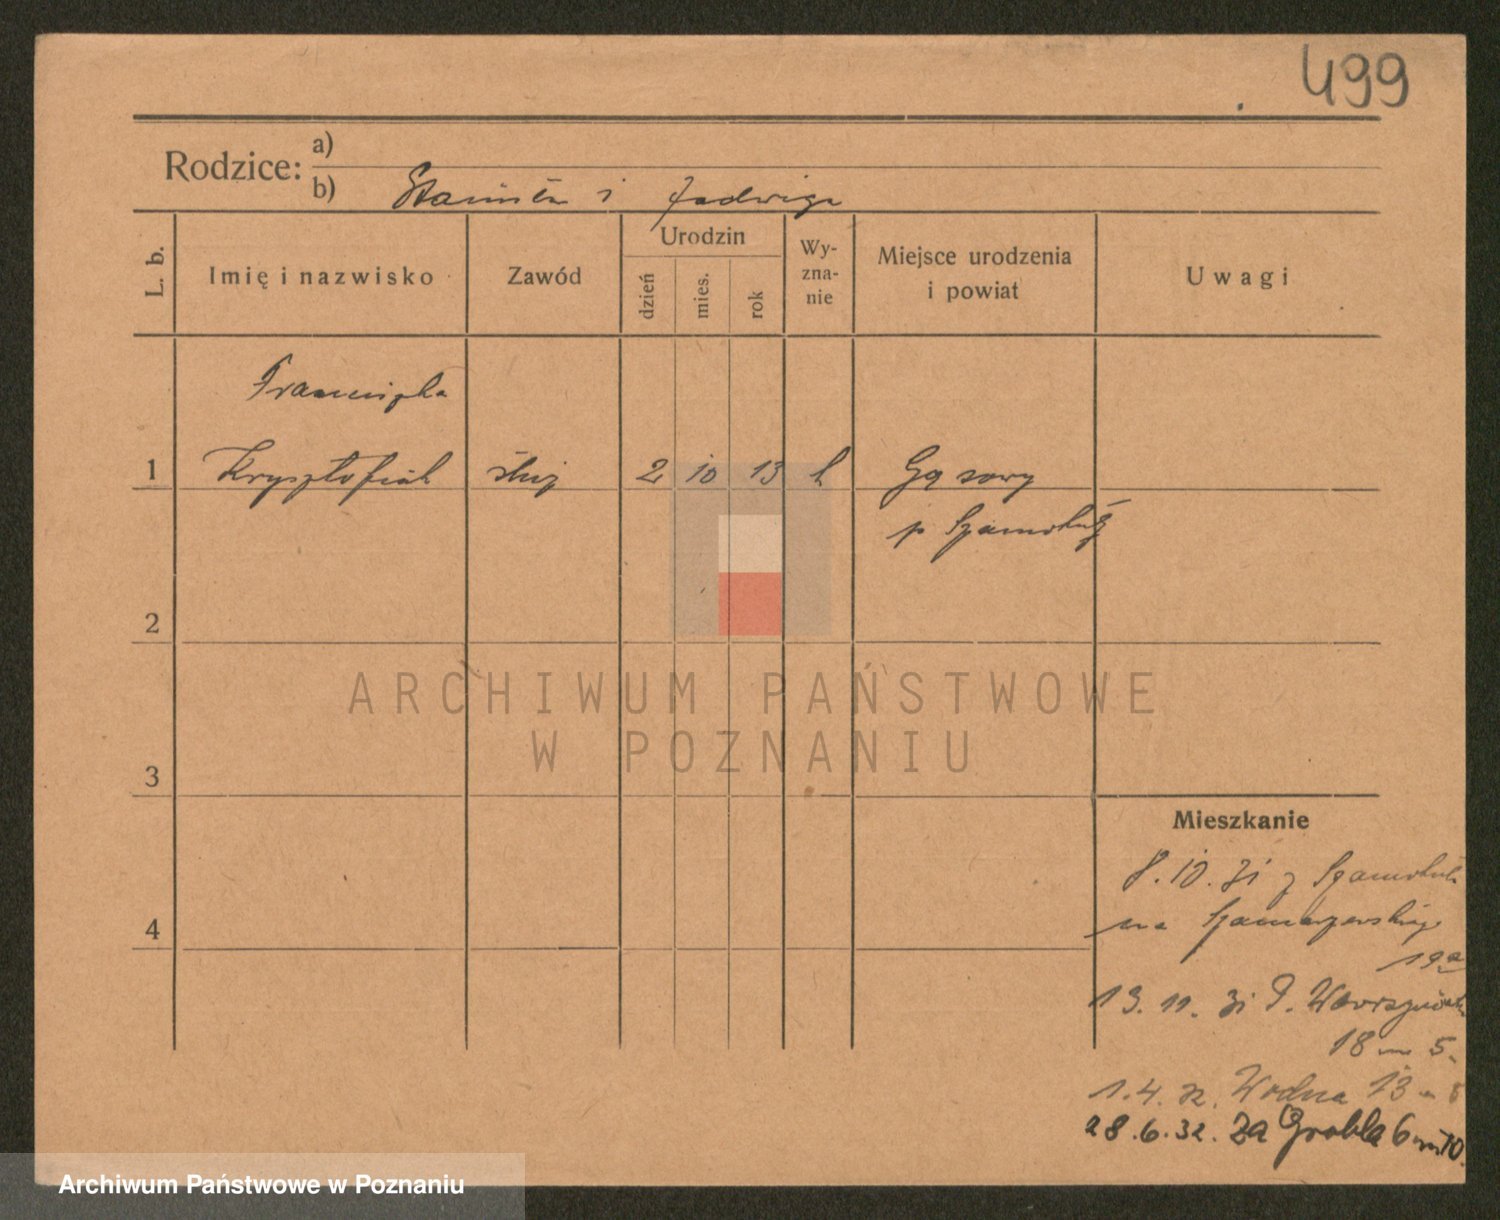 499
Rodzice: a)
b) Stanisław i Jadwiga
L. b.
Imię i nazwisko
Zawód
Urodzin
dzień
mies.
rok
Wy-
zna-
nie
Miejsce urodzenia
i powiat
Uwagi
Franciszka
1 Krysztofiak służ 2 10 13 k Gąsawy
p Szamotuły
2
ARCHIWUM PAŃSTWOWE
W POZNANIU
3
Mieszkanie
8.10.31 z Szamotuł
4
na Szamarzewskiego
19a
13.11.31 P. Wawrzyniaka
18 m 5.
1.4.32. Wodna 13 m
28.6.32. Za Groblą 6 m 10.
Archiwum Państwowe w Poznaniu